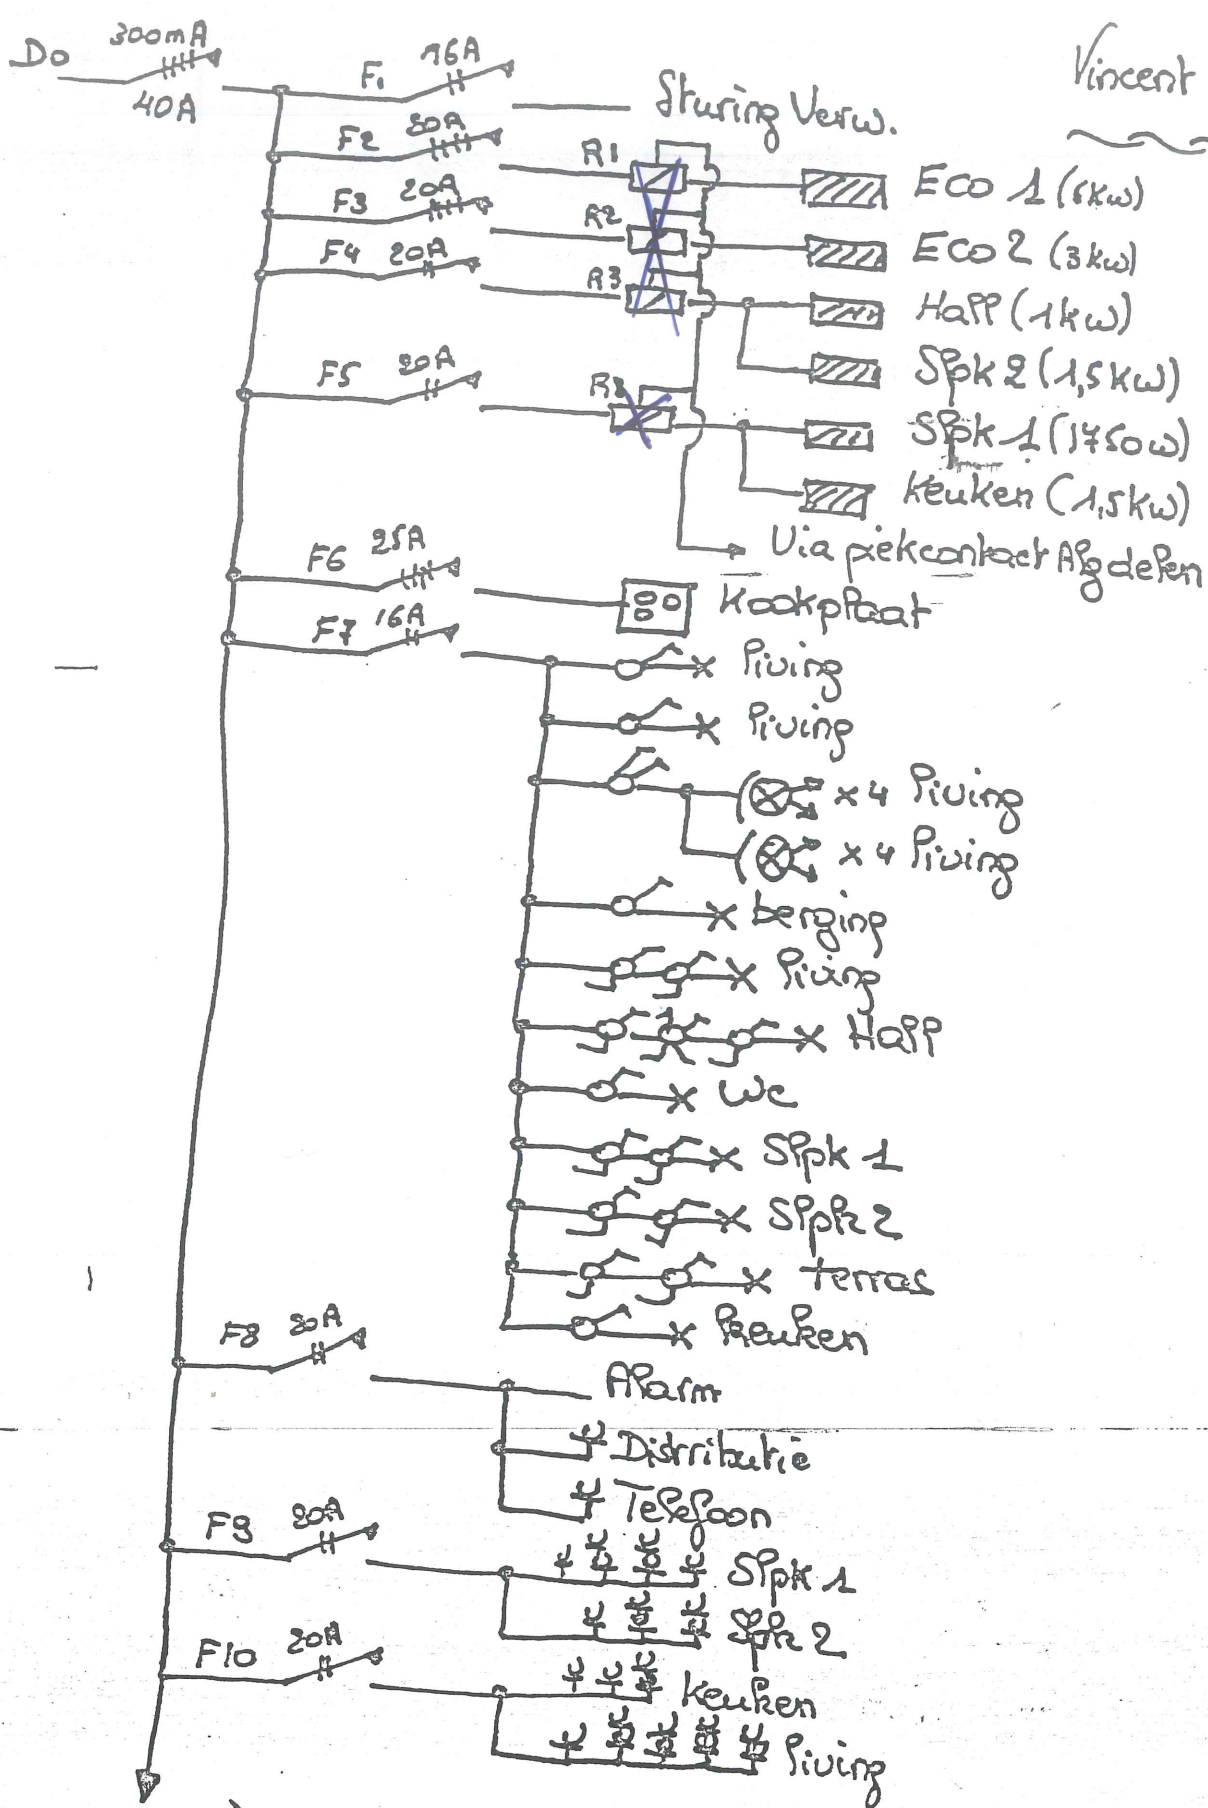 Do 300mA 40A
Vincent
F1 16A Sturing Verw.
F2 20A R1 Eco 1 (6kw)
F3 20A R2 Eco 2 (3kw)
F4 20A R3 Hall (1kw)
Slpk 2 (1,5kw)
F5 20A Slpk 1 (1750w)
keuken (1,5kw)
Via piekcontact Alg delen
F6 25A Kookplaat
F7 16A living
living
x4 living
x4 living
berging
living
Hall
Wc
Slpk 1
Slpk 2
terras
keuken
F8 20A Alarm
Distributie
Telefoon
F9 20A Slpk 1
Slpk 2
F10 20A keuken
living